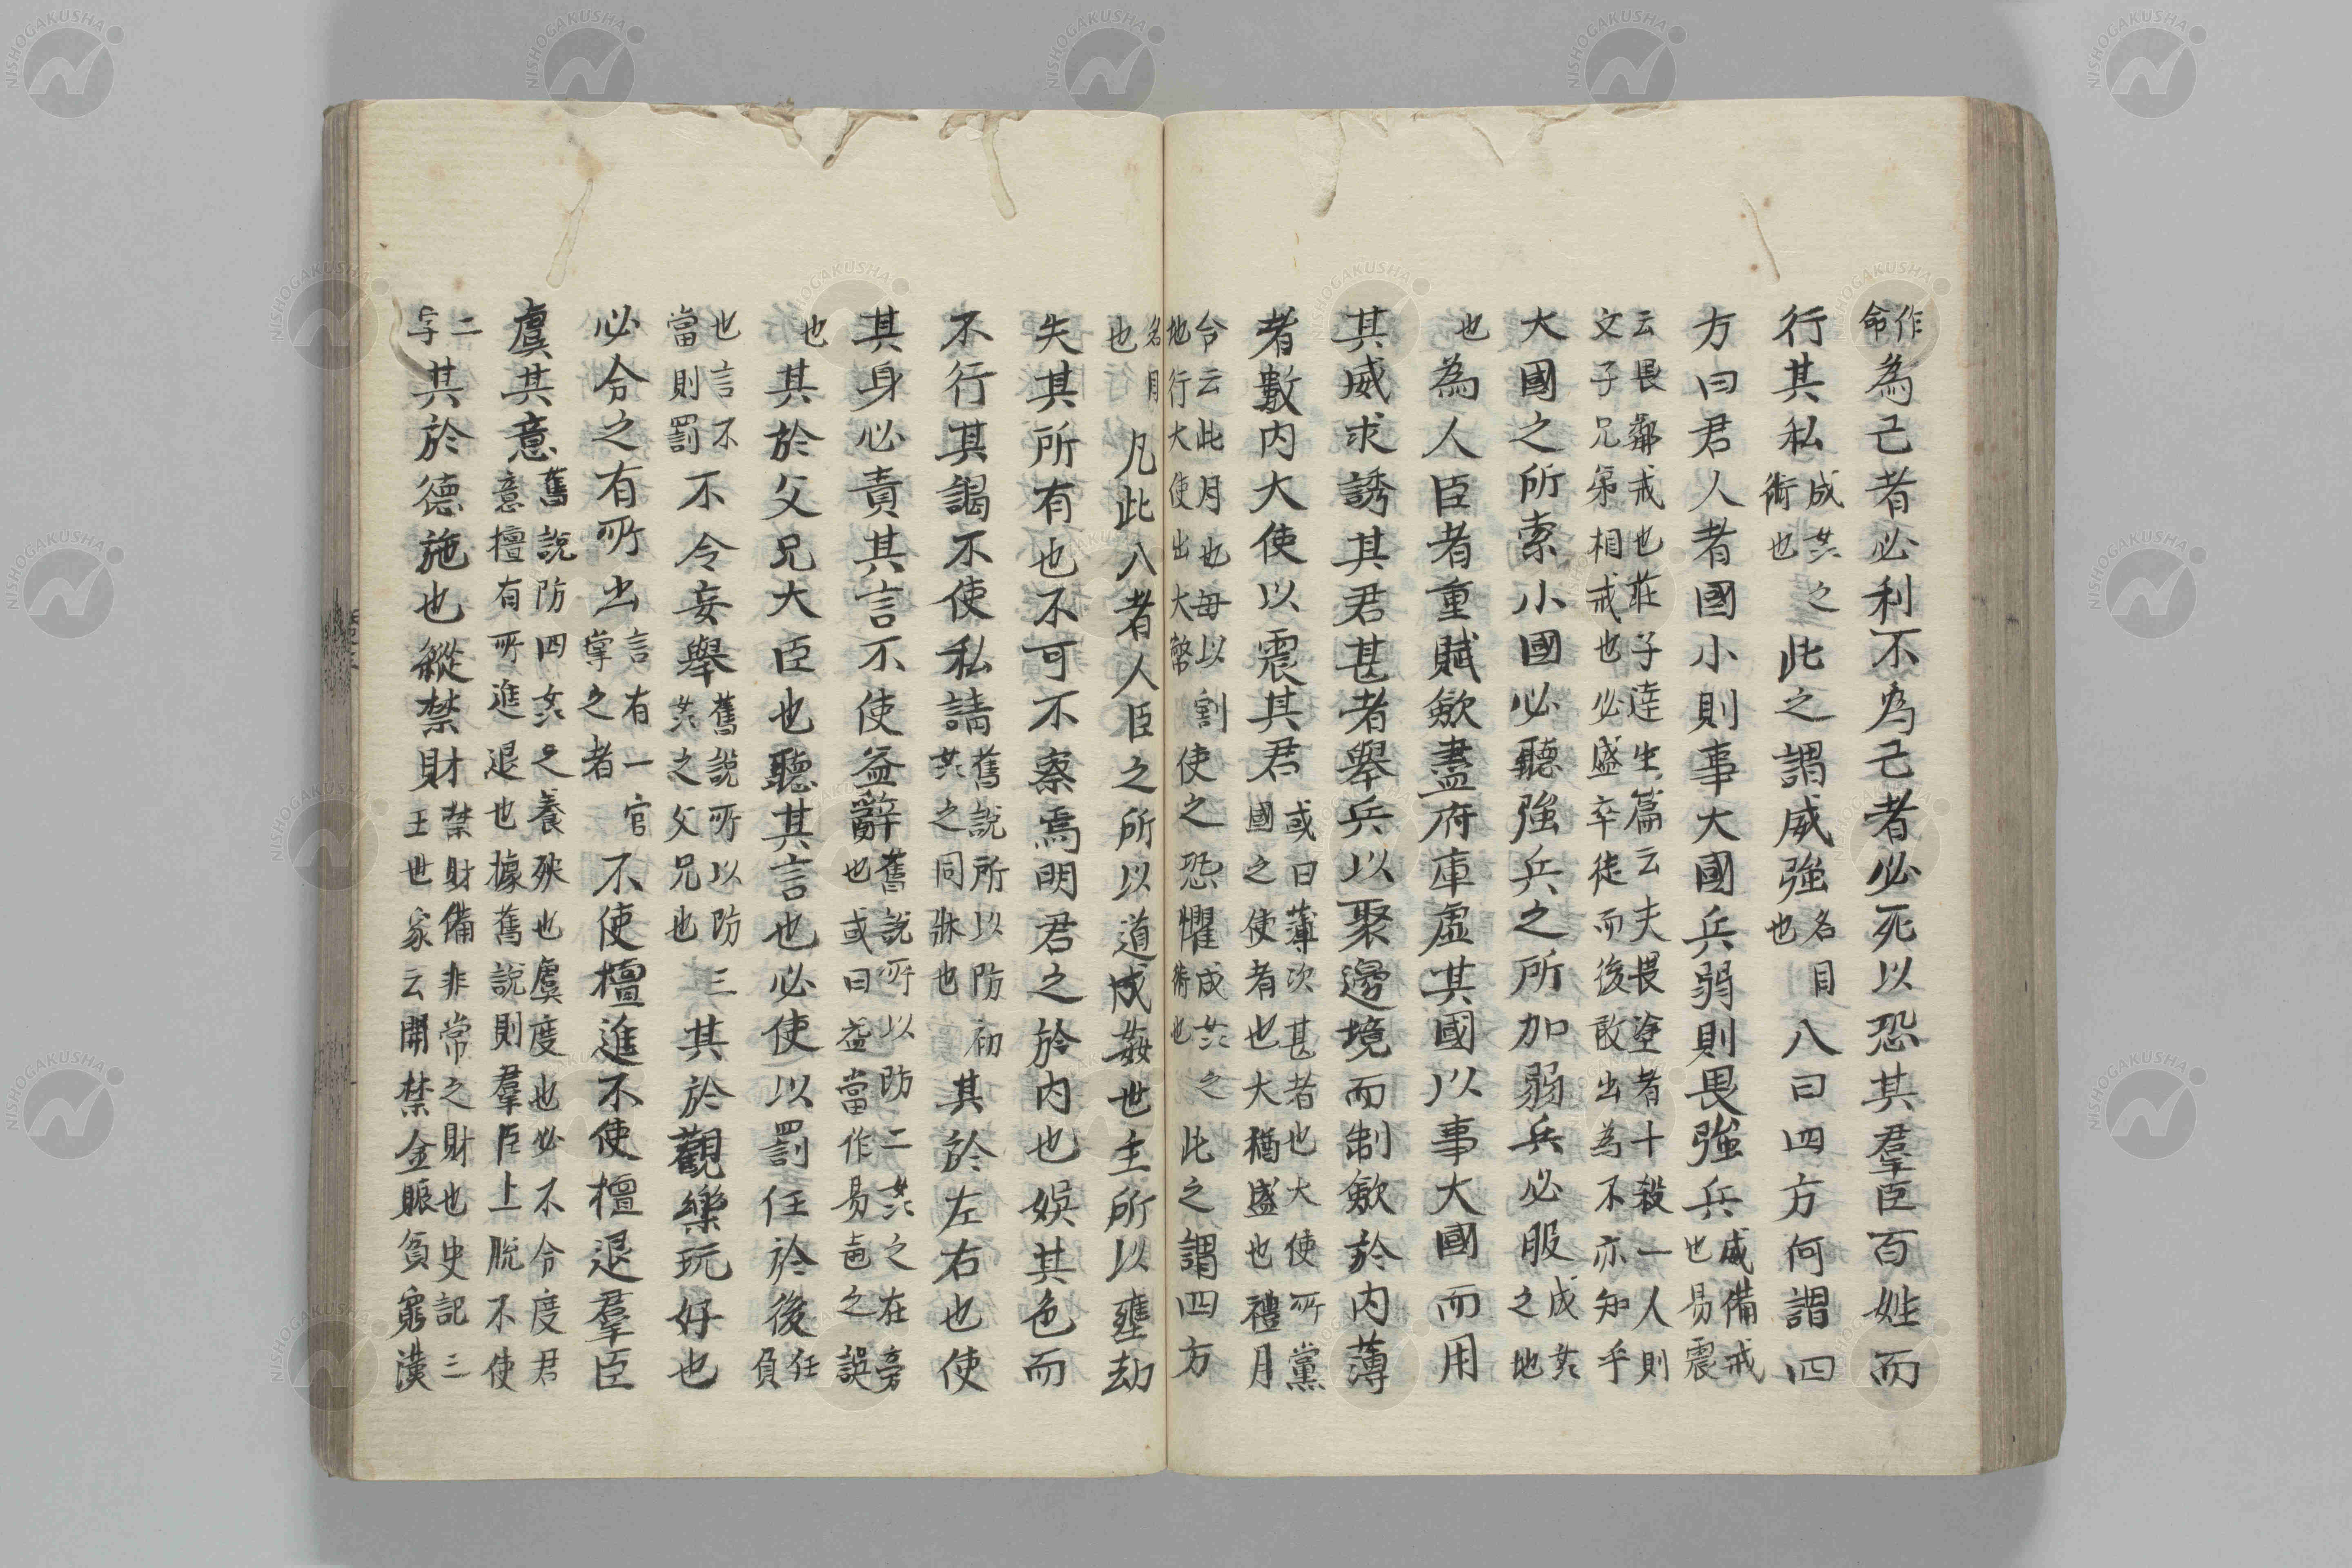 作命為己者必利不為己者必死以恐其羣臣百姓而
行其私成其之術也此之謂威強名目也八曰四方何謂四
方曰君人者國小則事大國兵弱則畏強兵威備戒也易震
云畏鄰戒也莊子達生篇云夫畏塗者十殺一人則文子兄弟相戒也必盛卒徒而後敢出為不亦知乎
大國之所索小國必聽強兵之所加弱兵必服成其之地
也為人臣者重賦歛盡府庫虛其國以事大國而用
其威求誘其君甚者舉兵以聚邊境而制歛於内薄
者數内大使以震其君或曰薄次甚者也大使所黨國之使者也大猶盛也禮月
令云此月也毋以割地行大使出大幣使之恐懼成其之術也此之謂四方
名目也凡此八者人臣之所以道成姦世主所以壅劫
失其所有也不可不察焉明君之於内也娯其色而
不行其謁不使私請舊説所以防初其之同牀也其於左右也使
其身必責其言不使益辭舊説所以防二其之在旁也或曰益當作易壴之誤
也其於父兄大臣也聽其言也必使以罰任於後任負
也言不當則罰不令妄舉舊説所以防三其之父兄也其於觀樂玩好也
必令之有所出言有一官掌之者不使檀進不使檀退羣臣
虞其意舊說防四其之養殃也虞度也必不令度君意檀有所進退也據舊説則羣臣上脱不使
二字其於德施也縱禁財禁財備非常之財也史記三王世家云開禁金賑貧窮漢